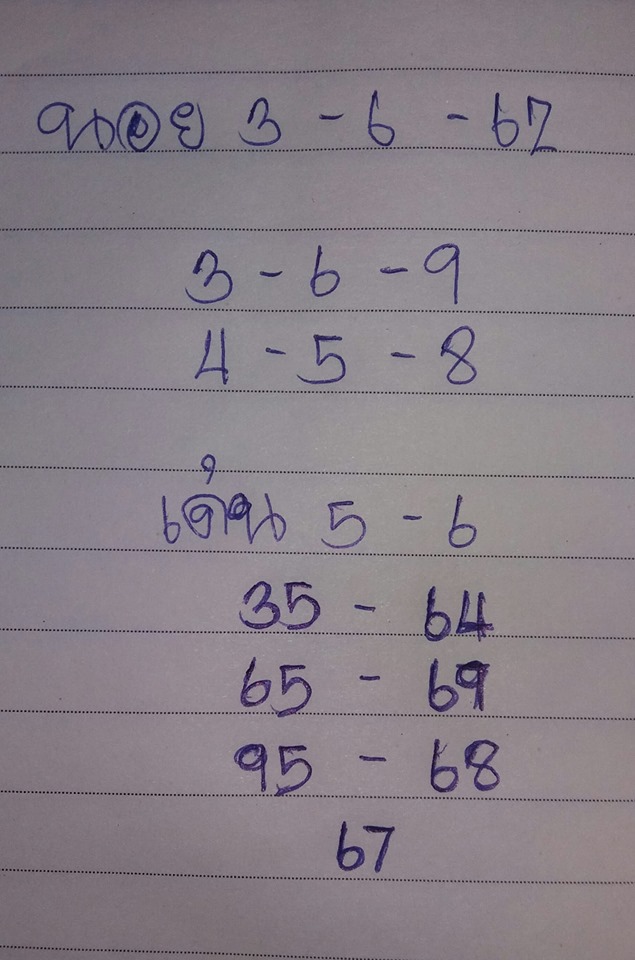 นอย 3 - 6 - 62
3 - 6 - 9
4 - 5 - 8
เด่น 5 - 6
35 - 64
65 - 69
95 - 68
67